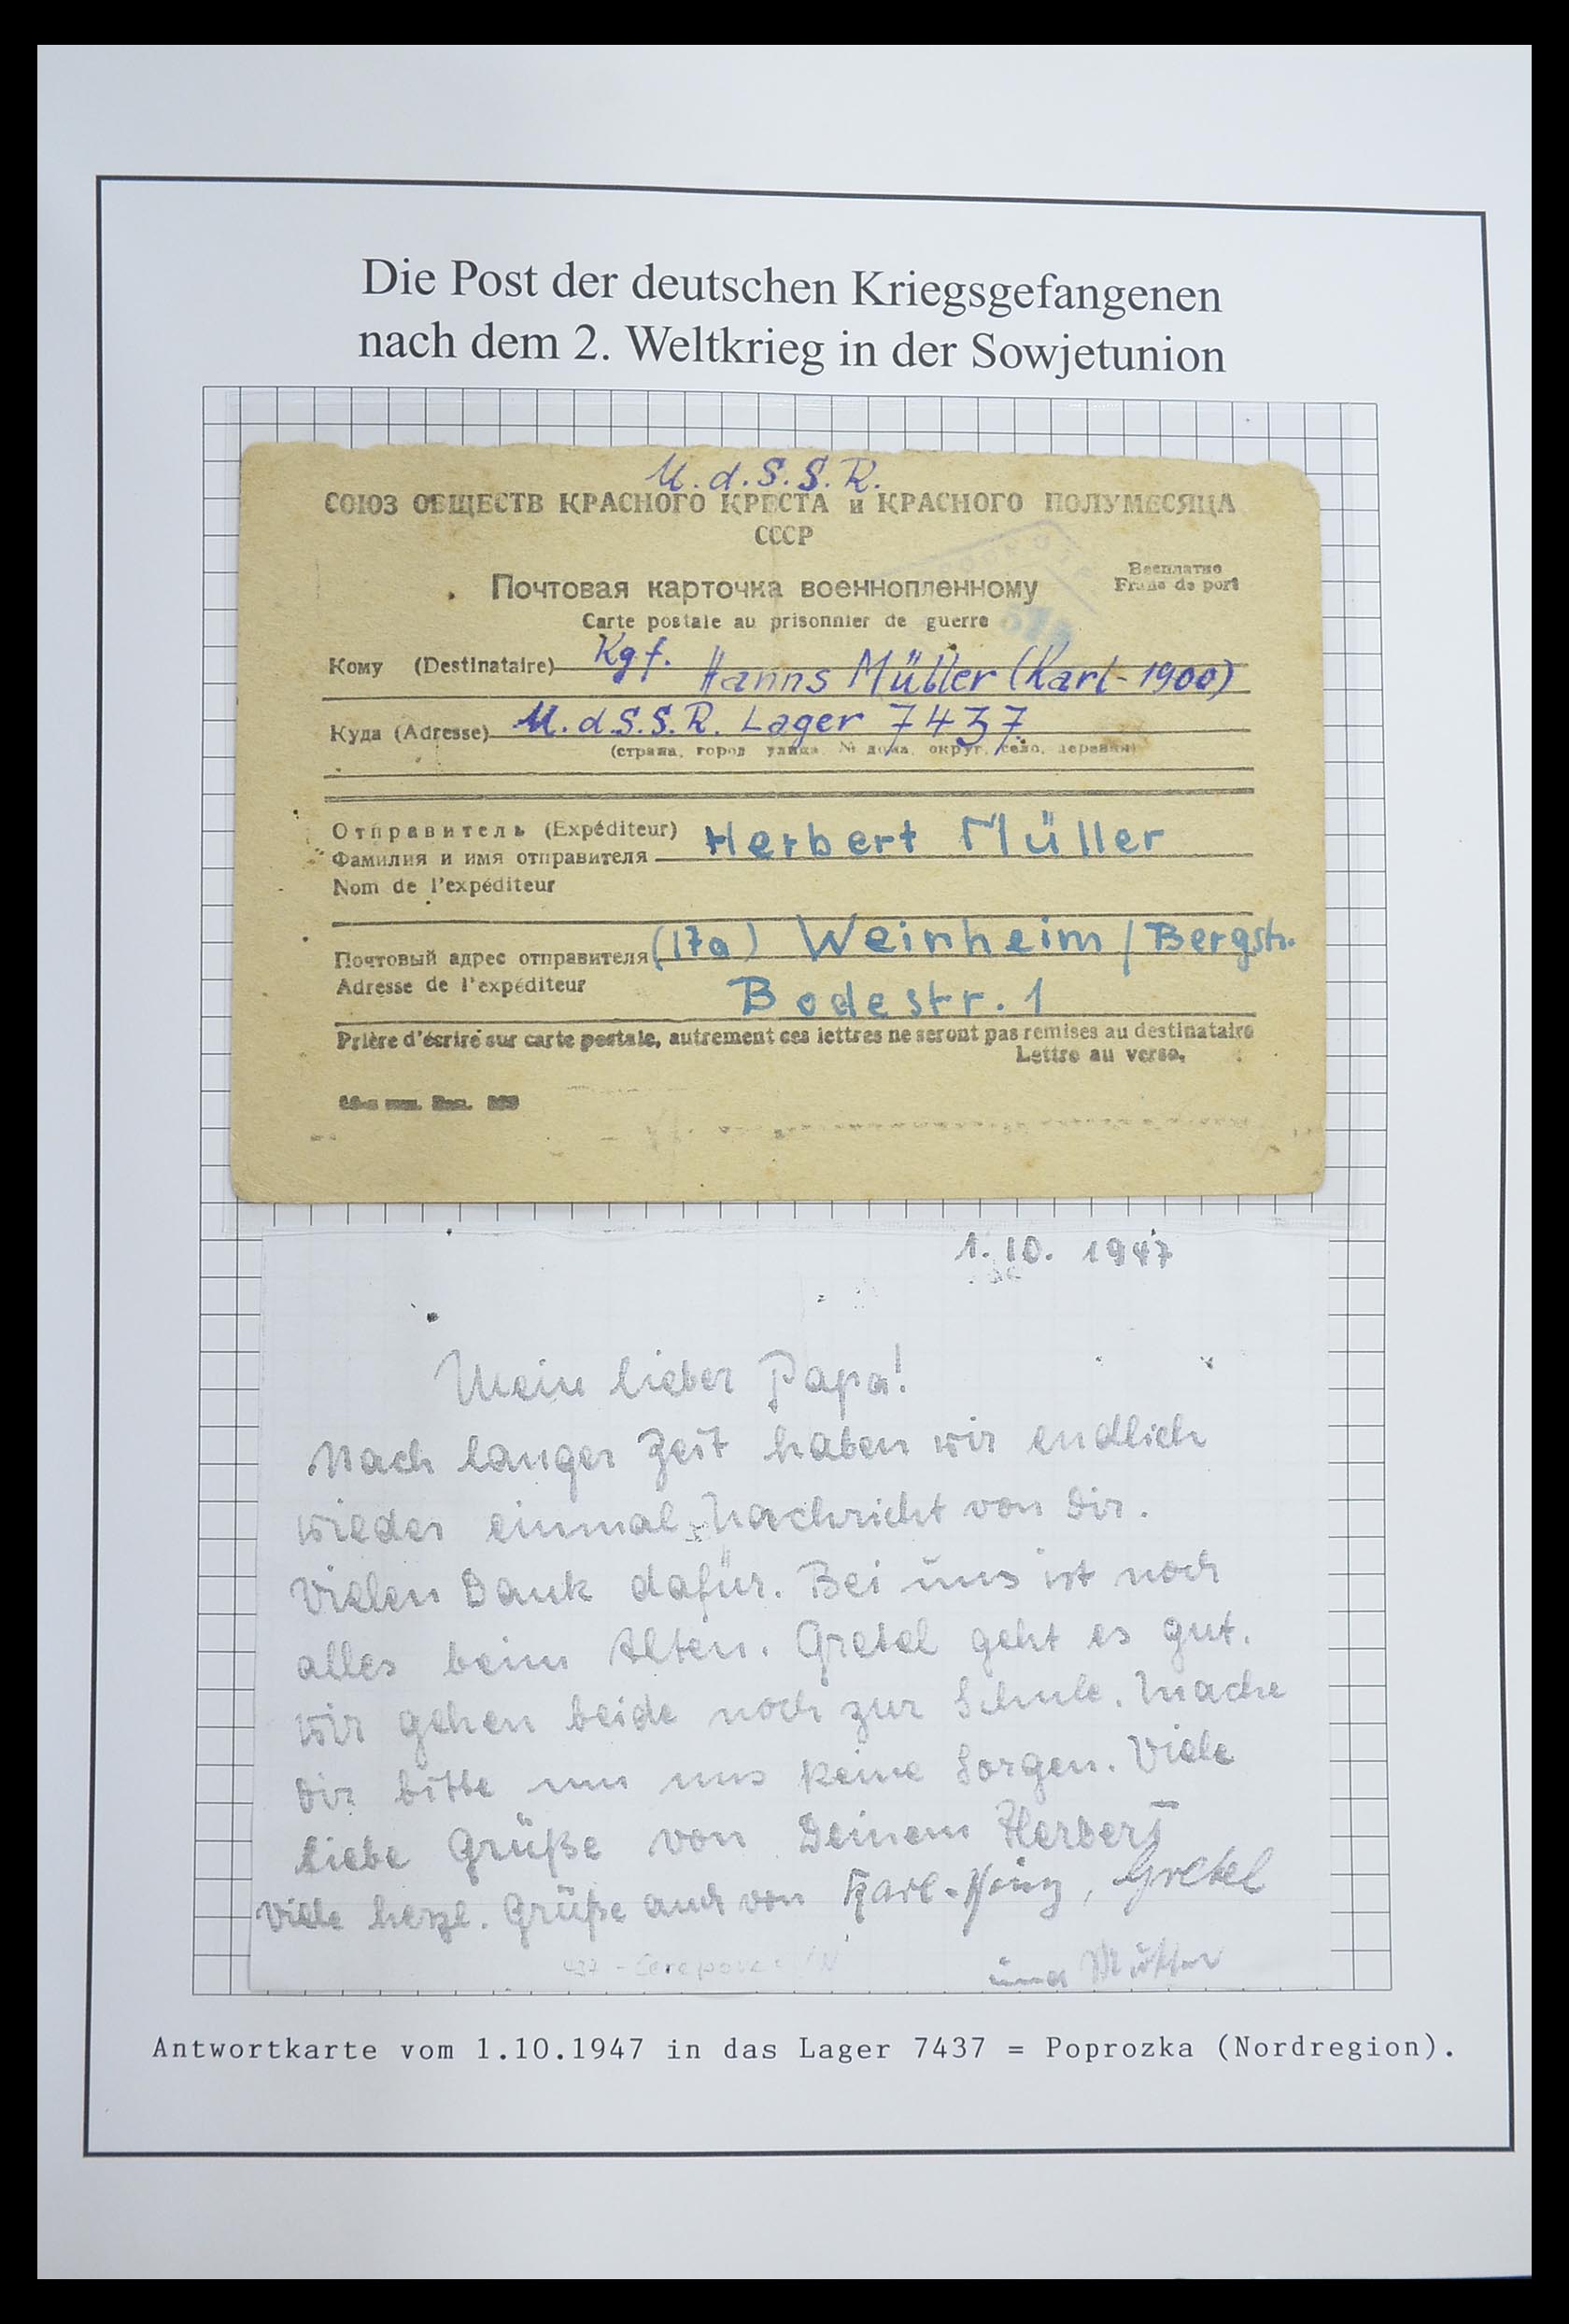 Die Post der deutschen Kriegsgefangenen
nach dem 2. Weltkrieg in der Sowjetunion
U.d.S.S.R.
СОЮЗ ОБЩЕСТВ КРАСНОГО КРЕСТА и КРАСНОГО ПОЛУМЕСЯЦА
СССР
Бесплатно
Franc de port
Почтовая карточка военнопленному
Carte postale au prisonnier de guerre
Кому (Destinataire) Kgf. Hanns Müller (Karl-1900)
Куда (Adresse) U.d.S.S.R. Lager 7437
(страна, город улица, № дома, округ, село, деревня)
Отправитель (Expéditeur)
Фамилия и имя отправителя Herbert Müller
Nom de l'expéditeur
Почтовый адрес отправителя (17a) Weinheim / Bergstr.
Adresse de l'expéditeur Bodestr. 1
Prière d'écrire sur carte postale, autrement ces lettres ne seront pas remises au destinataire
Lettre au verso.
1.10. 1947
Mein lieber Papa!
Nach langer Zeit haben wir endlich
wieder einmal Nachricht von Dir.
Vielen Dank dafür. Bei uns ist noch
alles beim Alten. Gretel geht es gut.
Wir gehen beide noch zur Schule. Mache
Dir bitte um uns keine Sorgen. Viele
liebe Grüße von Deinem Herbert
Viele herzl. Grüße auch von Karl-Heinz, Gretel
und Mutter
Antwortkarte vom 1.10.1947 in das Lager 7437 = Poprozka (Nordregion).